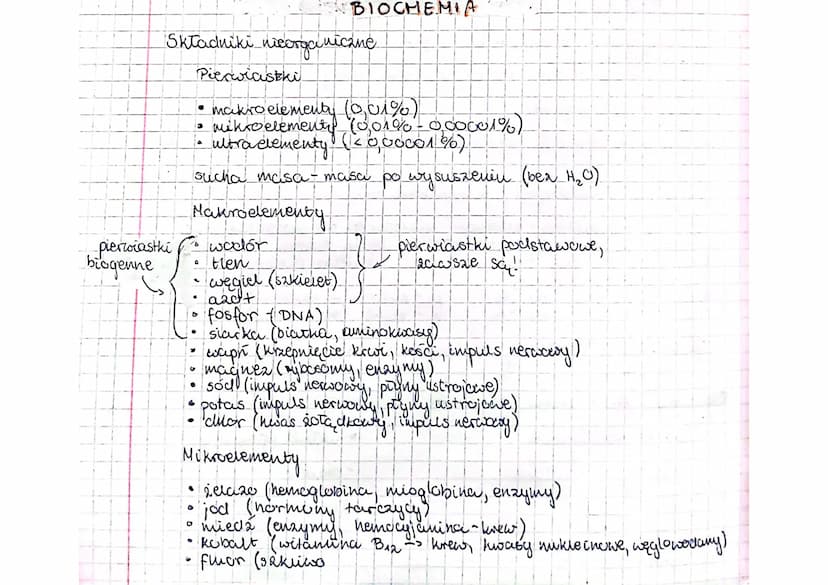 BIOCHEMIA
Składniki nieorganiczne
Pierwiastki
• makroelementy (0,01%)
• mikroelementy (0,01% - 0,00001%)
• ultraelementy (<0,00001%)
sucha masa - masa po wysuszeniu (bez H₂O)
Makroelementy
pierwiastki biogenne
• wodór
• tlen
• węgiel (szkielet)
• azot
pierwiastki podstawowe,
zawsze są!
• fosfor - (DNA)
• siarka (białka, aminokwasy)
• wapń (krzepnięcie krwi, kości, impuls nerwowy)
• magnez (rybosomy, enzymy)
• sód (impuls nerwowy, płyny ustrojowe)
• potas (impuls nerwowy, płyny ustrojowe)
• chlor (kwas żołądkowy, impuls nerwowy)
Mikroelementy
• żelazo (hemoglobina, mioglobina, enzymy)
• jod (hormony tarczycy)
• miedź (enzymy, hemocyjanina - krew)
• kobalt (witamina B₁₂ → krew, kwasy nukleinowe, węglowodany)
• fluor (szkliwo